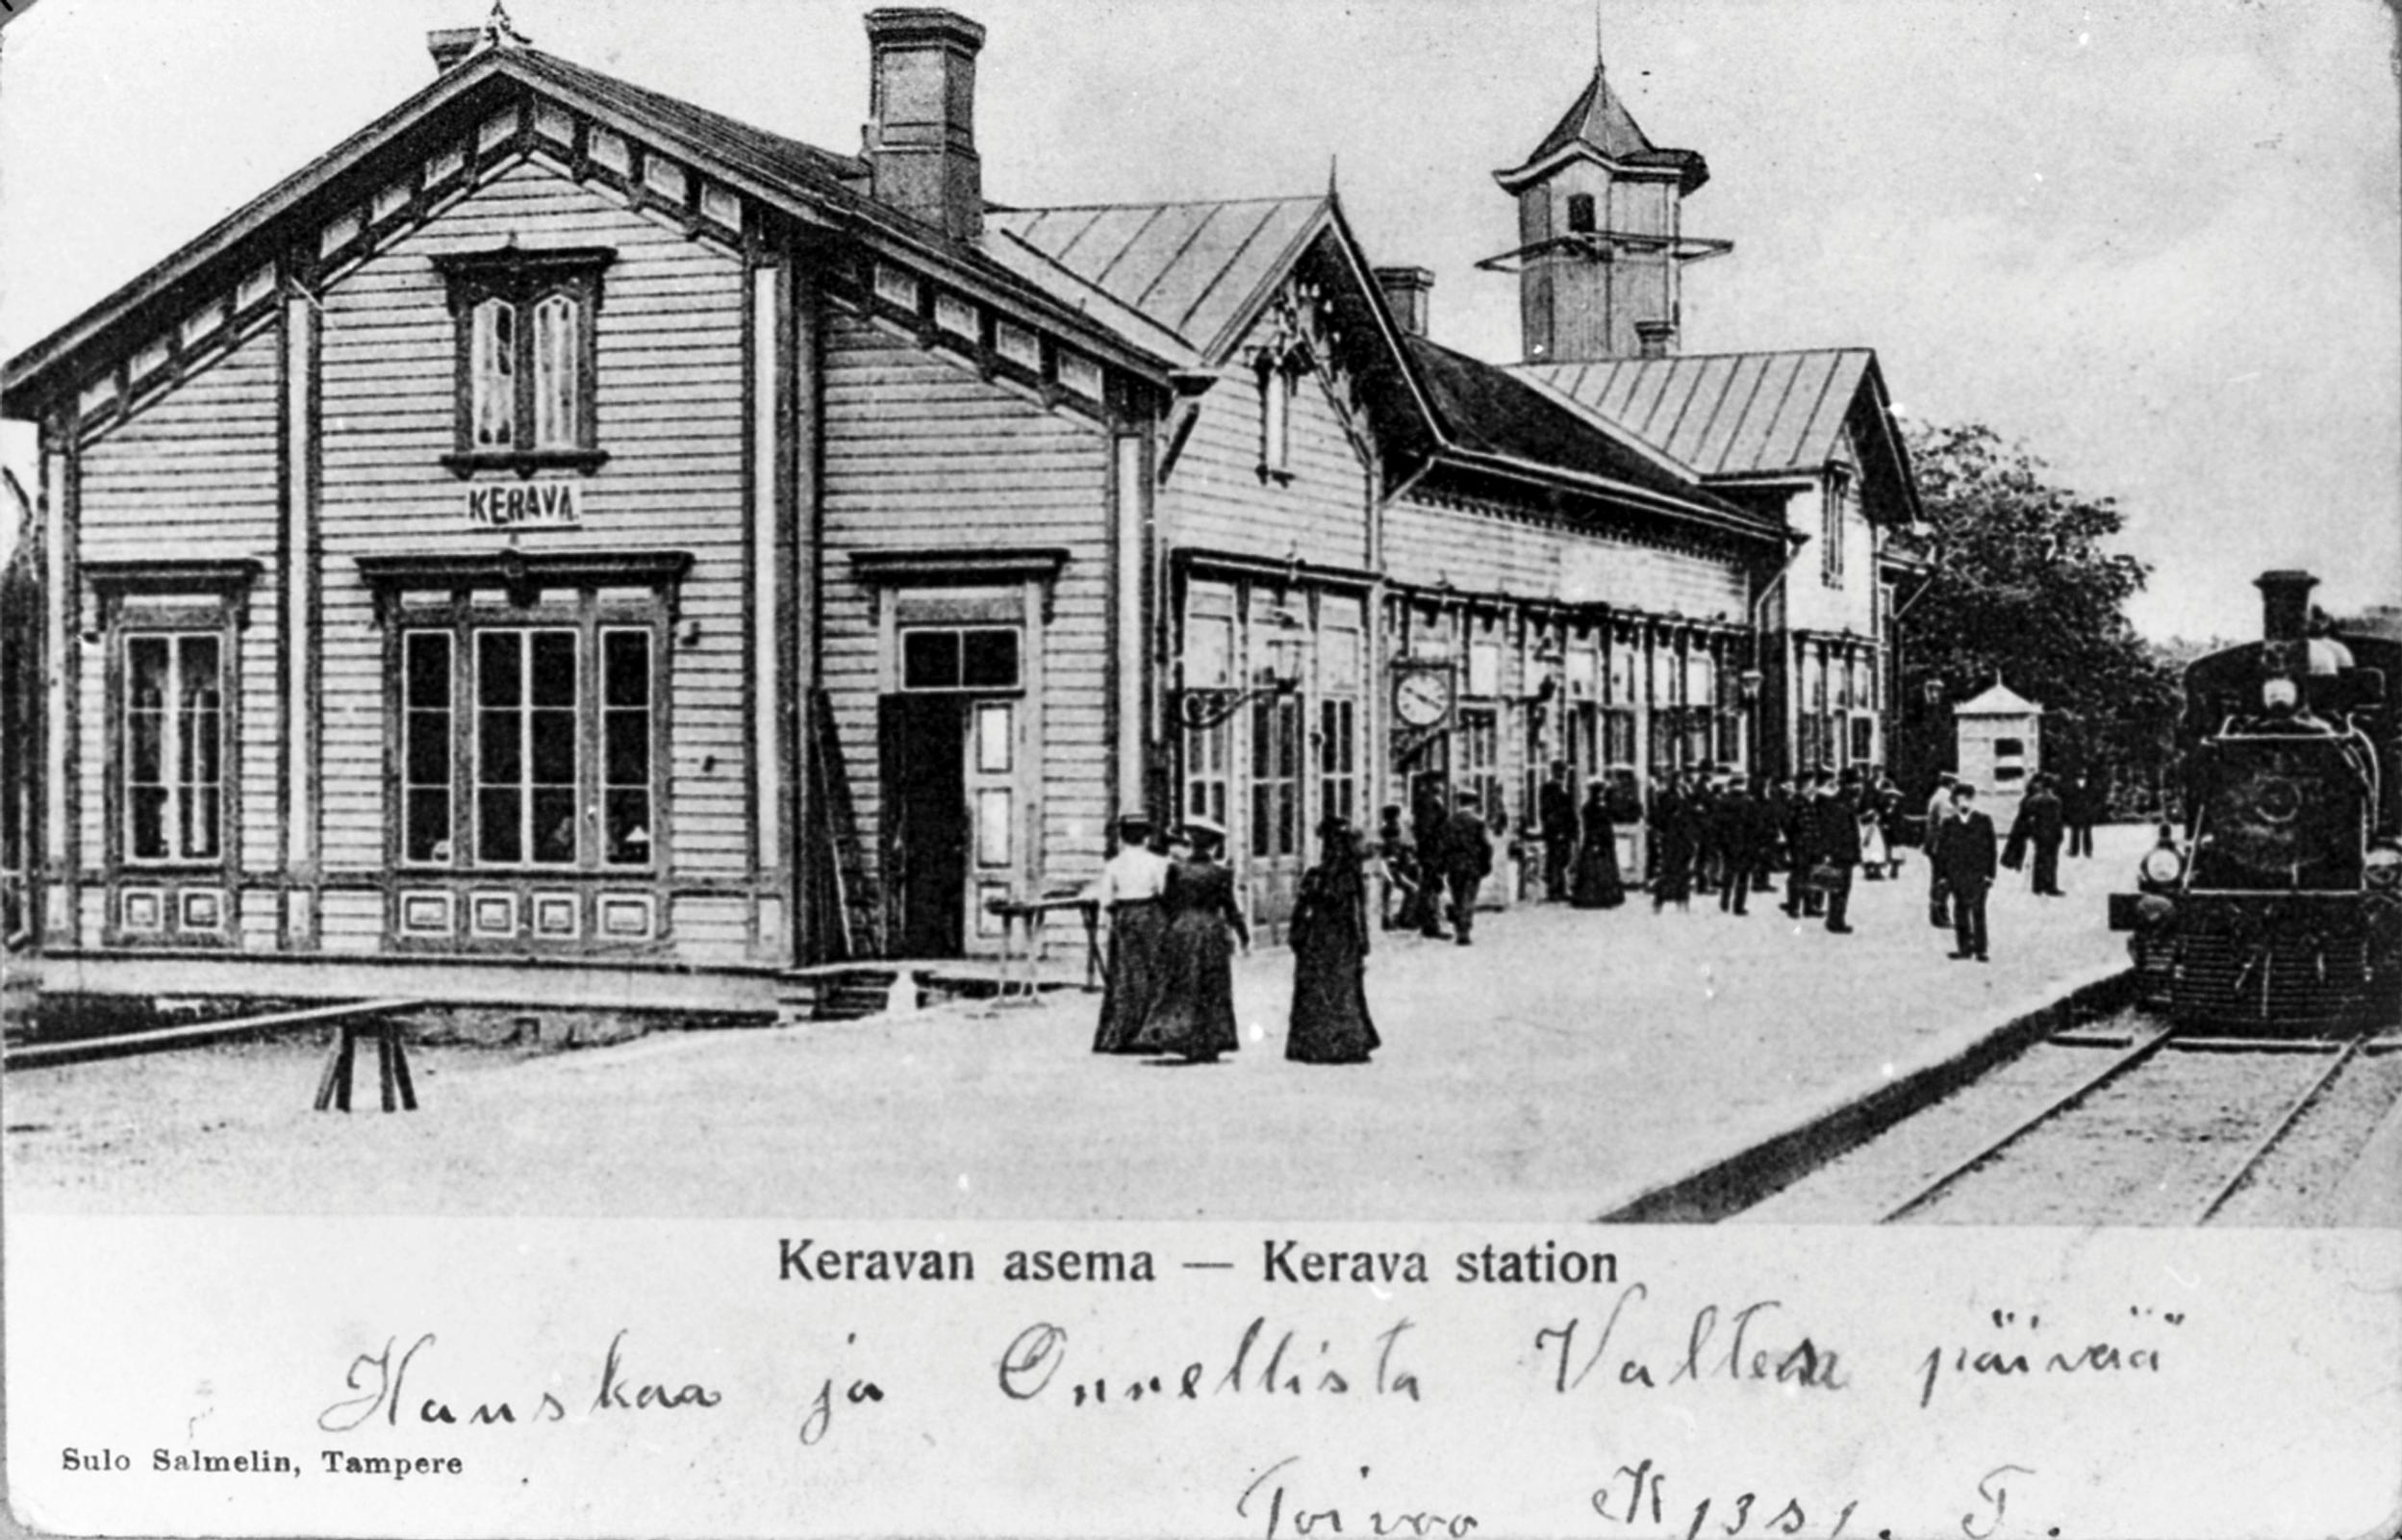 KERAVA
Keravan asema — Kerava station
Hauskaa ja Onnellista Valten päivää
Sulo Salmelin, Tampere
Toivoo